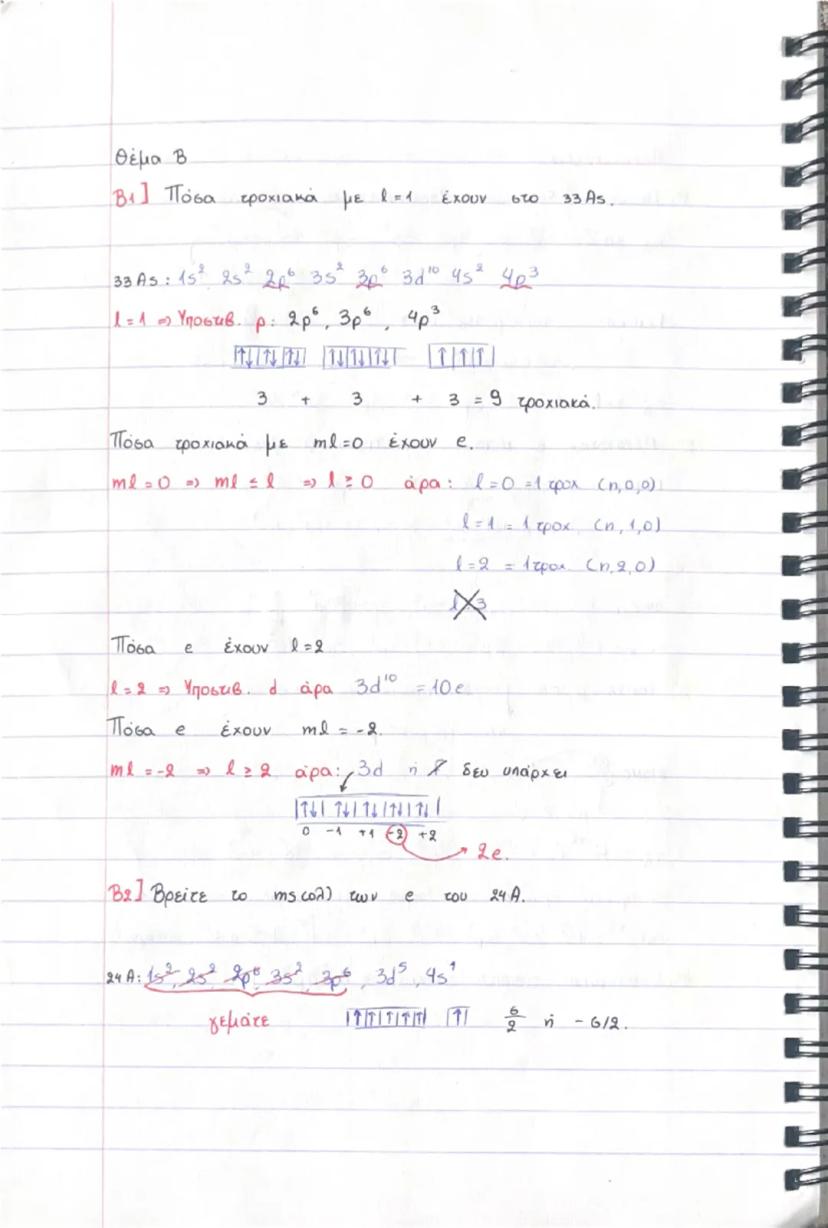 Θέμα Β
Β1] Πόσα τροχιακά με l=1 έχουν στο 33As.
33As: 1s² 2s² 2p⁶ 3s² 3p⁶ 3d¹⁰ 4s² 4p³
l=1 ⇒ Υποστιβ. p: 2p⁶, 3p⁶, 4p³
|↑↓|↑↓|↑↓| |↑↓|↑↓|↑↓| |↑|↑|↑|
3 + 3 + 3 = 9 τροχιακά.
Πόσα τροχιακά με ml=0 έχουν e.
ml=0 ⇒ ml ≤ l ⇒ l ≥ 0 άρα: l=0 =1 τροχ (n,0,0)
l=1 = 1 τροχ. (n,1,0)
l=2 = 1 τροχ (n,2,0)
l=3
Πόσα e έχουν l=2
l=2 ⇒ Υποστιβ. d άρα 3d¹⁰ =10e
Πόσα e έχουν ml=-2.
ml=-2 ⇒ l≥2 άρα: 3d ή f δεν υπάρχει
|↑↓|↑↓|↑↓|↑↓|↑↓|
0 -1 +1 -2 +2
2e.
Β2] Βρείτε το ms(ολ) των e του 24Α.
24Α: 1s², 2s², 2p⁶, 3s², 3p⁶, 3d⁵, 4s¹
γεμάτε |↑|↑|↑|↑|↑| |↑| 6/2 ή -6/2.